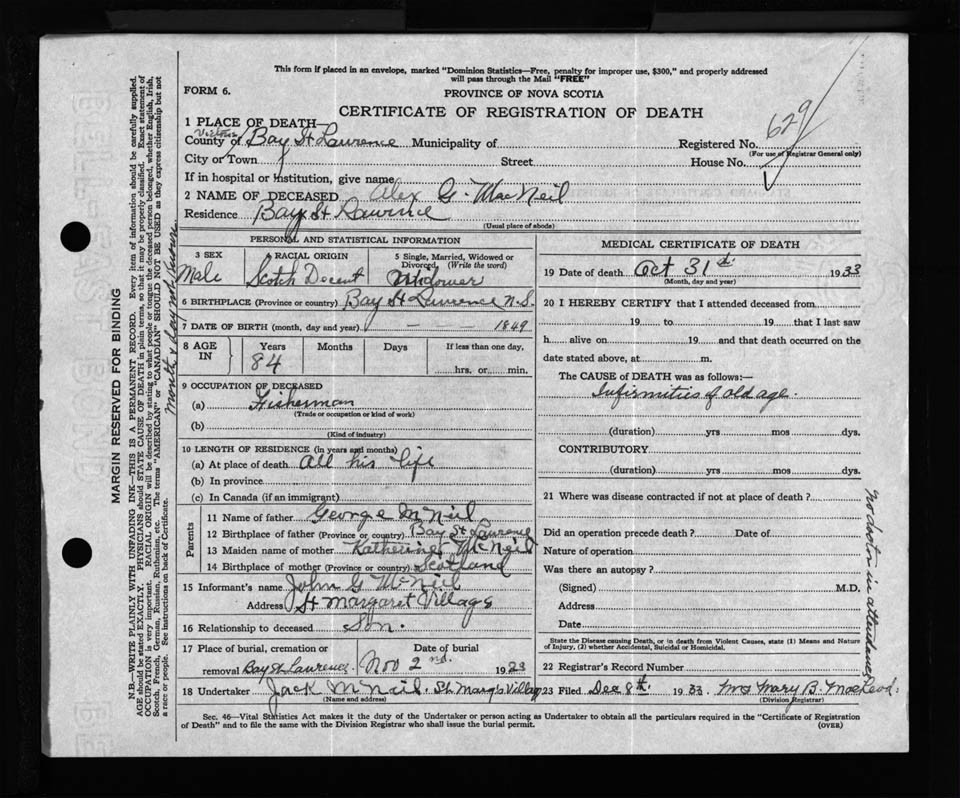 This form if placed in an envelope, marked "Dominion Statistics—Free, penalty for improper use, $300," and properly addressed
will pass through the Mail "FREE"
FORM 6.
PROVINCE OF NOVA SCOTIA
CERTIFICATE OF REGISTRATION OF DEATH
629
1 PLACE OF DEATH—
County of Victoria Bay St Lawrence Municipality of Registered No.
(For use of Registrar General only)
City or Town Street House No.
If in hospital or institution, give name
2 NAME OF DECEASED Alex G. MacNeil
Residence Bay St Lawrence
(Usual place of abode)
PERSONAL AND STATISTICAL INFORMATION
3 SEX Male
4 RACIAL ORIGIN Scotch Decent
5 Single, Married, Widowed or Divorced (Write the word) Widower
6 BIRTHPLACE (Province or country) Bay St Lawrence N.S.
7 DATE OF BIRTH (month, day and year) — — — 1849
8 AGE IN Years 84 Months Days If less than one day, hrs. or min.
9 OCCUPATION OF DECEASED
(a) Fisherman
(Trade or occupation or kind of work)
(b)
(Kind of industry)
10 LENGTH OF RESIDENCE (in years and months)
(a) At place of death All his life
(b) In province
(c) In Canada (if an immigrant)
Parents
11 Name of father George McNeil
12 Birthplace of father (Province or country) Bay St Lawrence
13 Maiden name of mother Katherine McNeil
14 Birthplace of mother (Province or country) Scotland
15 Informant's name John G McNeil
Address St Margaret Village
16 Relationship to deceased Son.
17 Place of burial, cremation or removal Bay St Lawrence Date of burial Nov 2nd. 1923
18 Undertaker Jack McNeil. St. Marg's Village
(Name and address)
MEDICAL CERTIFICATE OF DEATH
19 Date of death Oct 31st 1933
(Month, day and year)
20 I HEREBY CERTIFY that I attended deceased from
19 to 19 that I last saw
h alive on 19 and that death occurred on the
date stated above, at m.
The CAUSE of DEATH was as follows:—
Infirmities of old age.
(duration) yrs mos dys.
CONTRIBUTORY
(duration) yrs mos dys.
21 Where was disease contracted if not at place of death?
Did an operation precede death? Date of
Nature of operation
Was there an autopsy?
(Signed) M.D.
Address
Date
State the Disease causing Death, or in death from Violent Causes, state (1) Means and Nature
of Injury, (2) whether Accidental, Suicidal or Homicidal.
22 Registrar's Record Number
23 Filed Dec 8th. 1933 Mrs Mary B. MacLeod.
(Division Registrar)
No doctor in attendance
Sec. 46—Vital Statistics Act makes it the duty of the Undertaker or person acting as Undertaker to obtain all the particulars required in the "Certificate of Registration
of Death" and to file the same with the Division Registrar who shall issue the burial permit.
(OVER)
MARGIN RESERVED FOR BINDING
N.B.—WRITE PLAINLY WITH UNFADING INK—THIS IS A PERMANENT RECORD. Every item of information should be carefully supplied.
AGE should be stated EXACTLY. PHYSICIANS should STATE CAUSE OF DEATH in plain terms, so that it may be properly classified. Exact statement of
OCCUPATION is very important. RACIAL ORIGIN will be described by stating to what people or tongue the deceased person belonged, whether English, Irish,
Scotch, French, German, Russian, Ruthenian, etc. The terms "AMERICAN" or "CANADIAN" SHOULD NOT BE USED as they express citizenship but not
a race or people. See instructions on back of Certificate.
Month & day not known